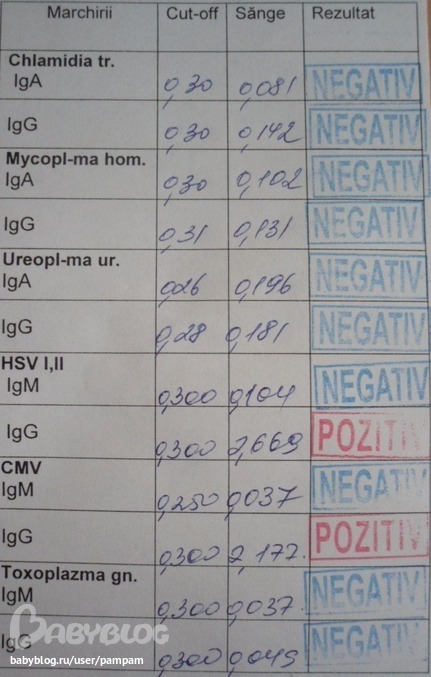 Marchirii Cut-off Sănge Rezultat
Chlamidia tr.
IgA 0,30 0,081 NEGATIV
IgG 0,30 0,142 NEGATIV
Mycopl-ma hom.
IgA 0,30 0,102 NEGATIV
IgG 0,31 0,131 NEGATIV
Ureopl-ma ur.
IgA 0,26 0,196 NEGATIV
IgG 0,28 0,181 NEGATIV
HSV I,II
IgM 0,300 0,104 NEGATIV
IgG 0,300 2,669 POZITIV
CMV
IgM 0,250 0,037 NEGATIV
IgG 0,300 2,172. POZITIV
Toxoplazma gn.
IgM 0,300 0,037. NEGATIV
IgG 0,300 0,045 NEGATIV
BABYBLOG
babyblog.ru/user/pampam